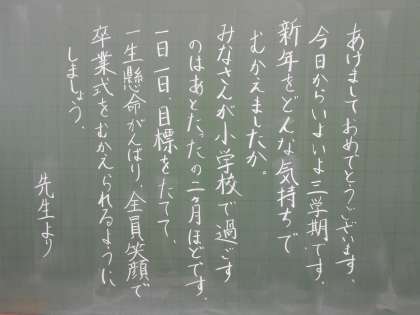 あけましておめでとうございます、
今日からいよいよ三学期です。
新年をどんな気持ちで
むかえましたか。
みなさんが小学校で過ごす
のはあとたったの二ヶ月ほどです。
一日一日、目標をたてて、
一生懸命がんばり、全員笑顔で
卒業式をむかえられるように
しましょう。
先生より